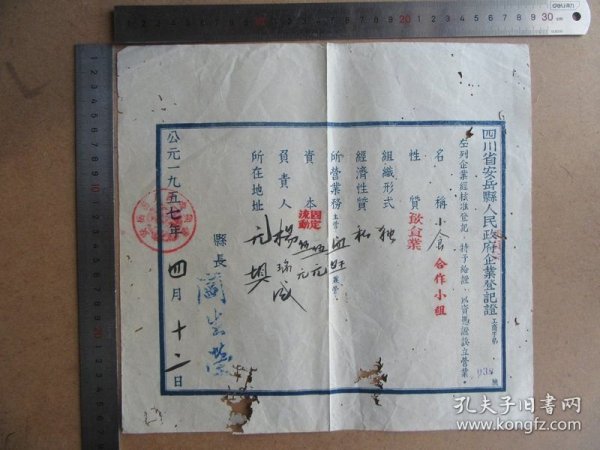 四川省安岳縣人民政府企業登記證
工商字第 號
左列企業經核准登記，特予給證，以資憑證設立營業。
名稱 小食 合作小組
性質 飲食業
組織形式 独
經濟性質 私
所營業務 主營 兼營
資本 固定 流動 元 元
負責人 楊瑞成
所在地址 元垻
縣長
公元一九五七年四月十二日
孔夫子旧书网
www.kongfz.com